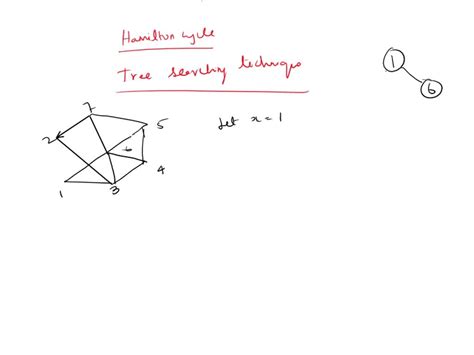 Hamilton cycle
Tree searching technique
1
6
7
2
5
Let x = 1
6
4
1
3